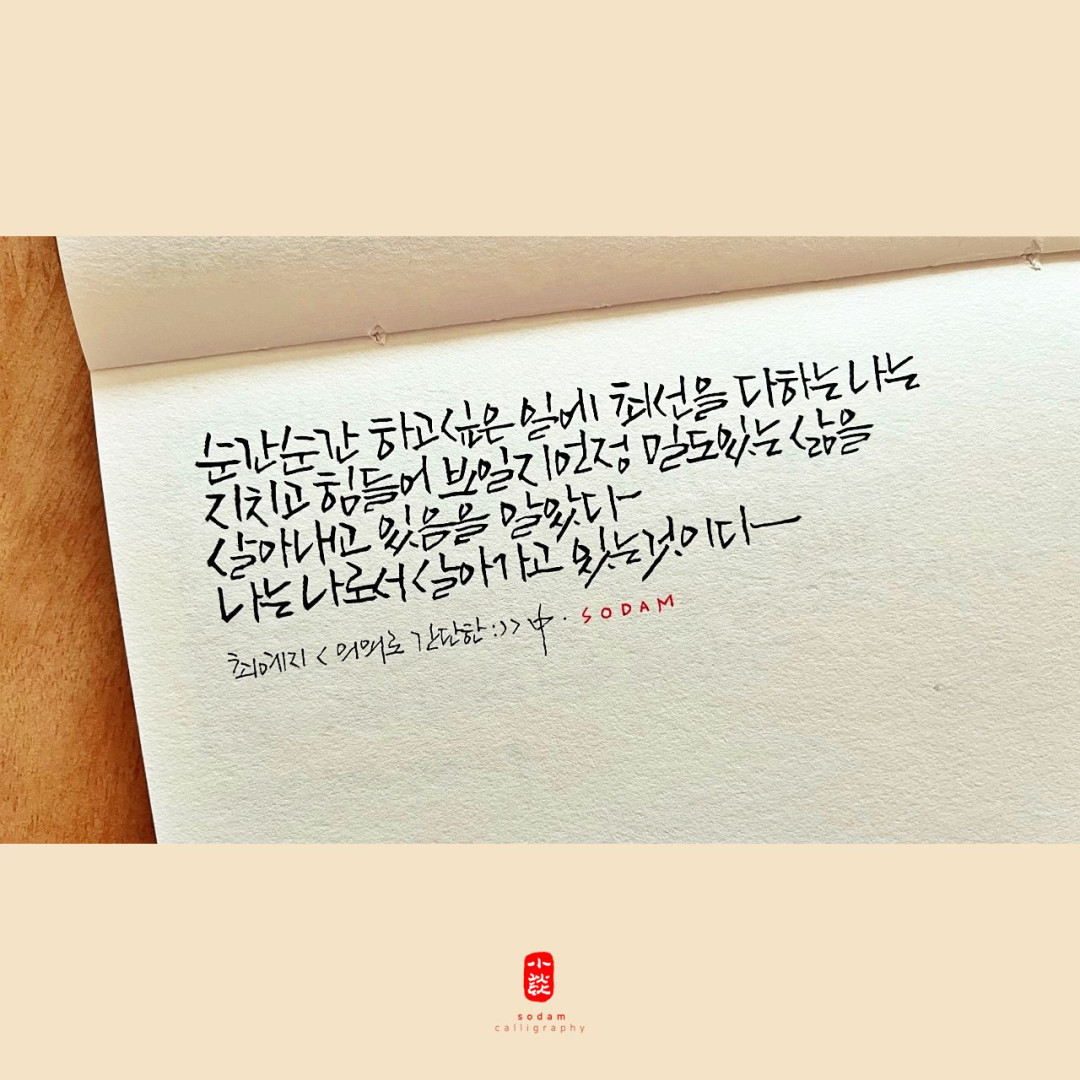 순간순간 하고싶은 일에 최선을 다하는 나는
지치고 힘들어 보일지언정 밀도있는 삶을
살아내고 있음을 알았다
나는 나로서 살아가고 있는것이다
최예지 < 의외로 간단한 :) > 中 · SODAM
小談
sodam
calligraphy